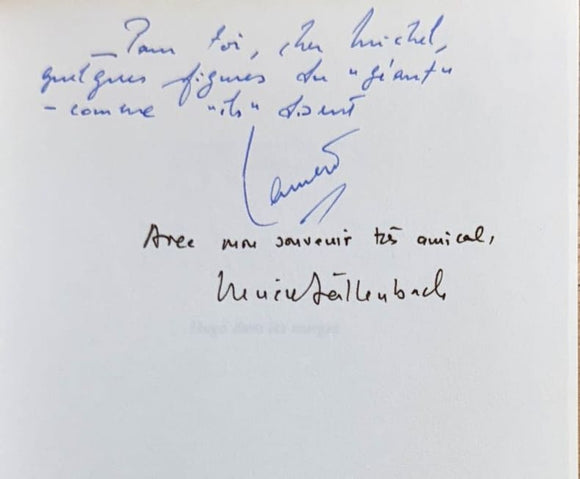 — Pour toi, cher Michel,
quelques figures du "géant"
– comme "ils" disent
Laurent
Avec mon souvenir très amical,
Lucien Dällenbach
Hugo dans les marges